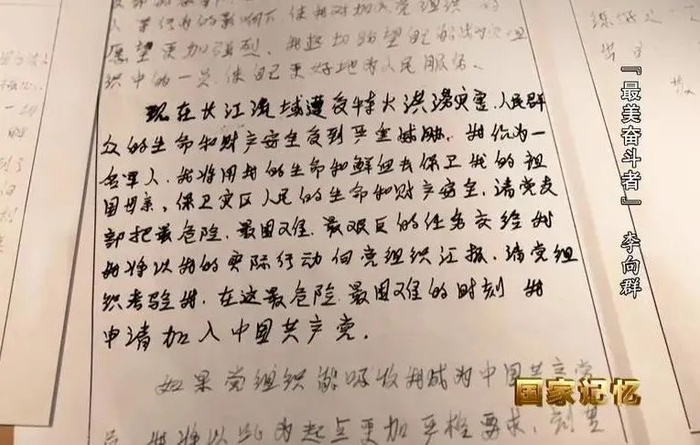 愿望更加强烈。我迫切盼望自己能成为组
织中的一员,使自己更好地为人民服务。
现在长江流域遭受特大洪涝灾害,人民群
众的生命和财产安全受到严重威胁,我作为一
名军人,我将用我的生命和鲜血去保卫我的祖
国母亲,保卫灾区人民的生命和财产安全,请党支
部把最危险、最困难、最艰巨的任务交给我
我将以我的实际行动向党组织汇报,请党组
织考验我,在这最危险最困难的时刻 我
申请加入中国共产党。
如果党组织能吸收我成为中国共产党
我将以此为起点更加严格要求
『最美奋斗者』 李向群
国家记忆